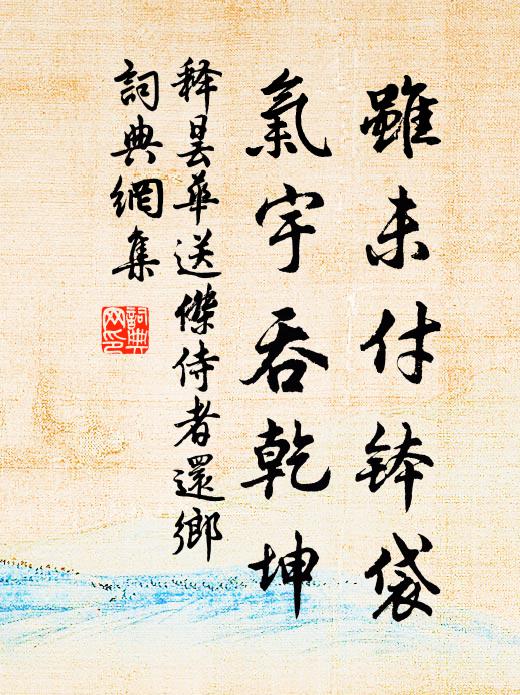 雖未付鉢袋
氣宇吞乾坤
释曇華送傑侍者還鄉
詞典網集
詞典
网印